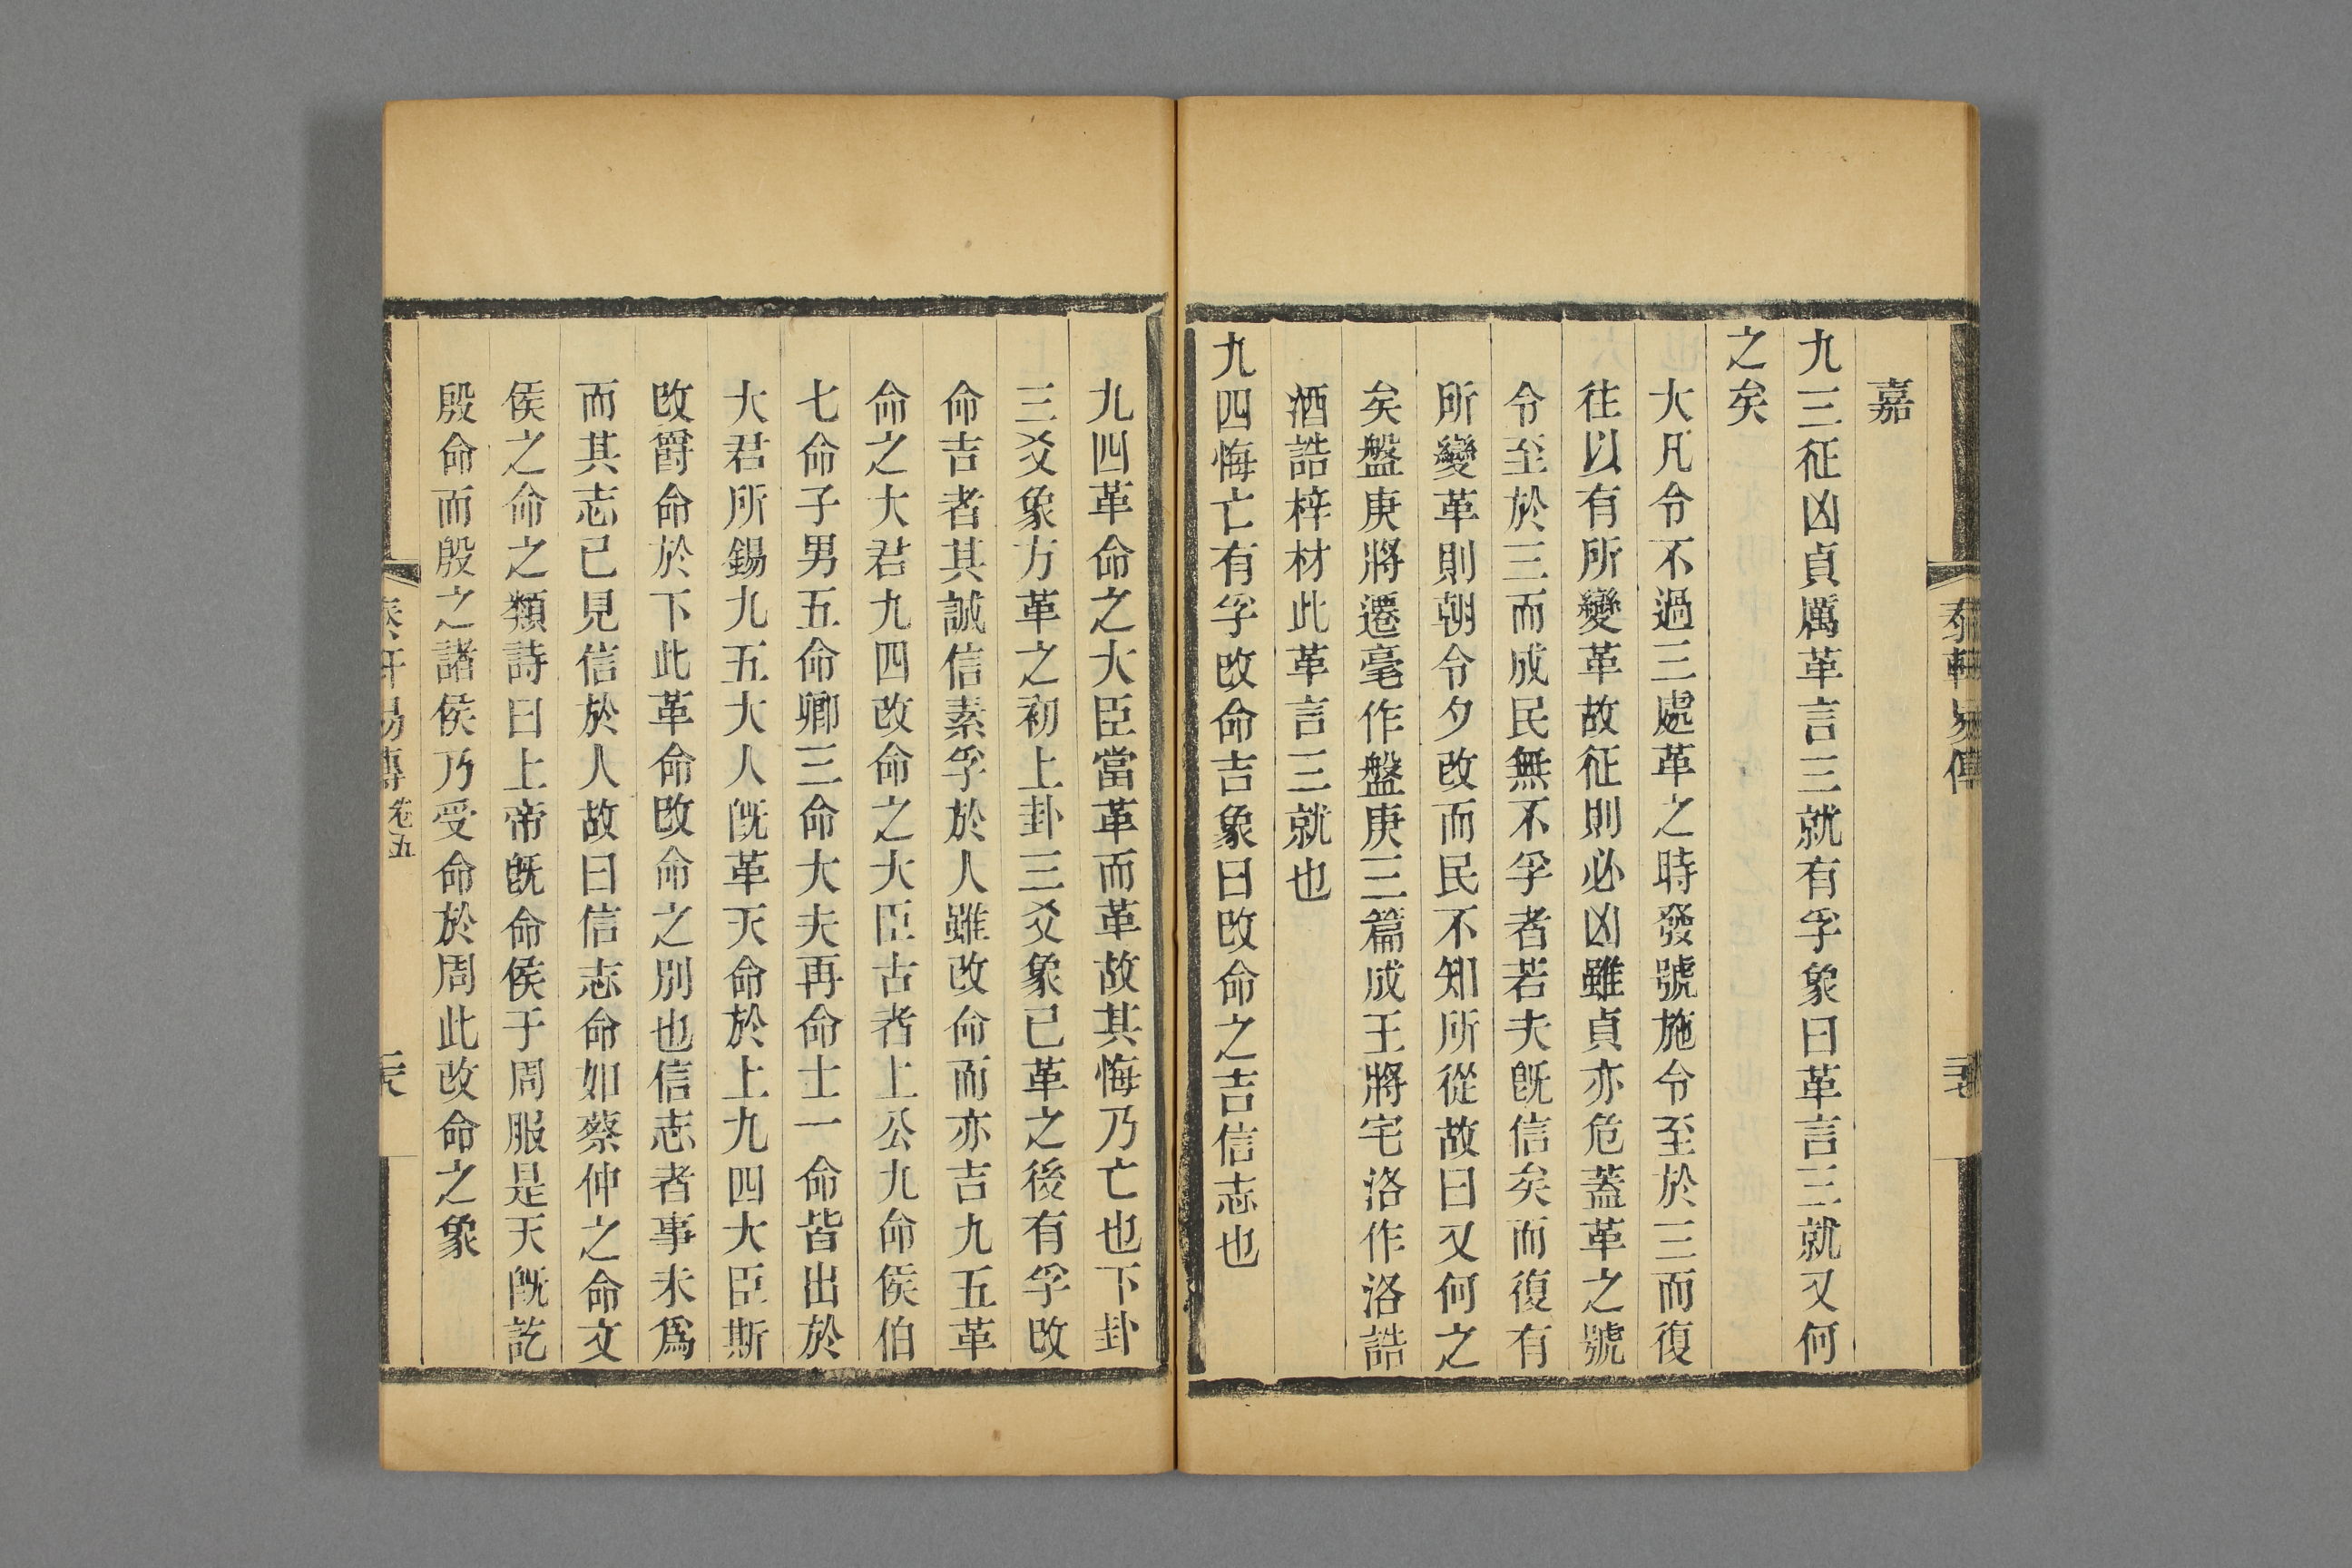 嘉
九三征凶貞厲革言三就有孚象曰革言三就又何
之矣
大凡令不過三處革之時發號施令至於三而復
往以有所變革故征則必凶雖貞亦危蓋革之號
令至於三而成民無不孚者若夫旣信矣而復有
所變革則朝令夕改而民不知所從故曰又何之
矣盤庚將遷亳作盤庚三篇成王將宅洛作洛誥
酒誥梓材此革言三就也
九四悔亡有孚改命吉象曰改命之吉信志也
九四革命之大臣當革而革故其悔乃亡也下卦
三爻象方革之初上卦三爻象已革之後有孚改
命吉者其誠信素孚於人雖改命而亦吉九五革
命之大君九四改命之大臣古者上公九命侯伯
七命子男五命卿三命大夫再命士一命皆出於
大君所錫九五大人旣革天命於上九四大臣斯
改爵命於下此革命改命之別也信志者事未爲
而其志已見信於人故曰信志命如蔡仲之命文
侯之命之類詩曰上帝旣命侯于周服是天旣訖
殷命而殷之諸侯乃受命於周此改命之象
易傳 卷五